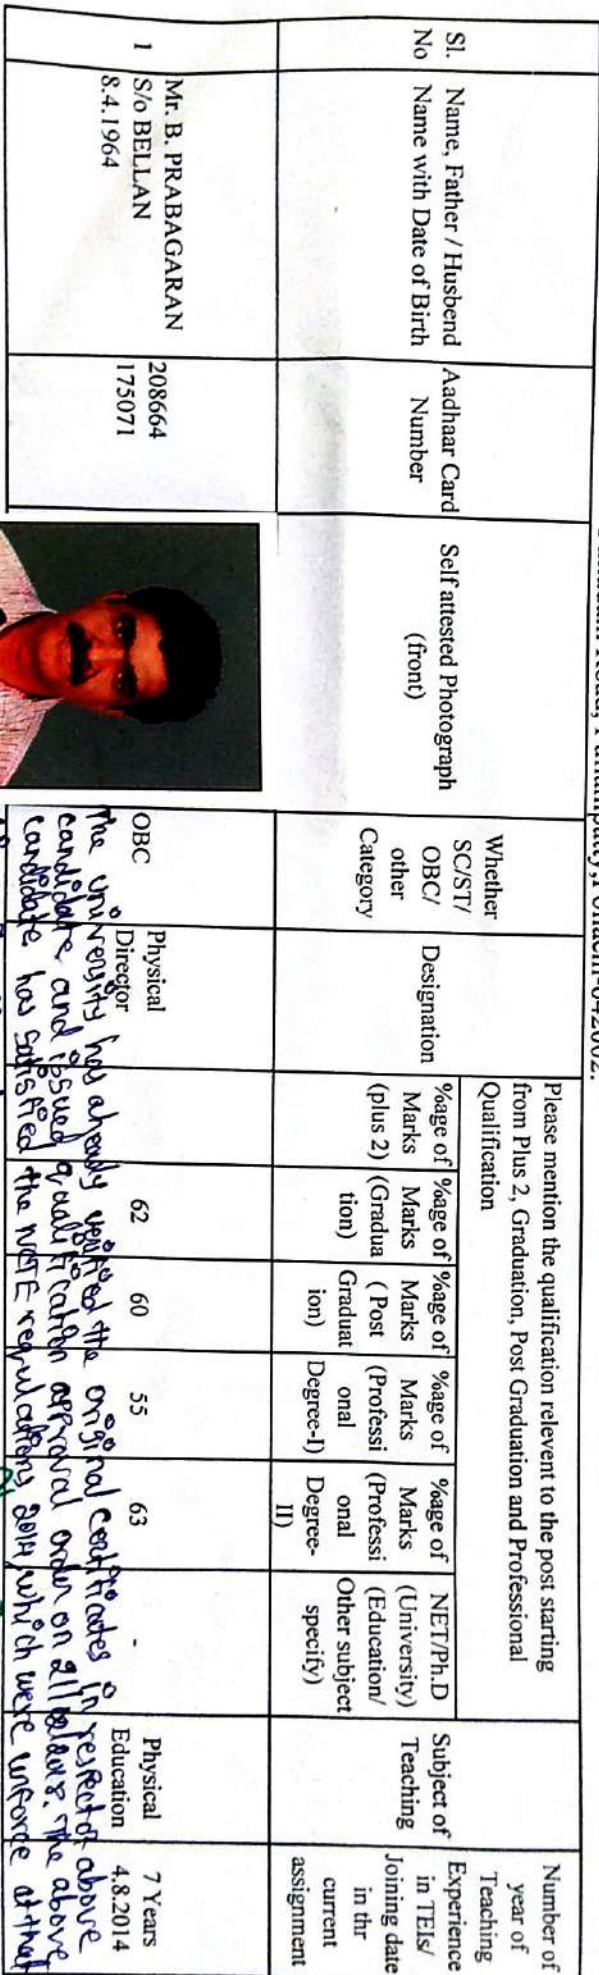 Pollachi-642002.
Sl. No
Name, Father / Husbend
Name with Date of Birth
Aadhaar Card
Number
Self attested Photograph
(front)
Whether
SC/ST/
OBC/
other
Category
Designation
Please mention the qualification relevent to the post starting
from Plus 2, Graduation, Post Graduation and Professional
Qualification
%age of
Marks
(plus 2)
%age of
Marks
(Gradua
tion)
%age of
Marks
( Post
Graduat
ion)
%age of
Marks
(Professi
onal
Degree-I)
%age of
Marks
(Professi
onal
Degree-
II)
NET/Ph.D
(University)
(Education/
Other subject
specify)
Subject of
Teaching
Number of
year of
Teaching
Experience
in TEIs/
Joining date
in thr
current
assignment
1
Mr. B. PRABAGARAN
S/o BELLAN
8.4.1964
208664
175071
OBC
Physical
Director
62
60
55
63
-
Physical
Education
7 Years
4.8.2014
The University has already verified the original certificates in respect of above
candidate and issued qualification approval order on The above
candidate has satisfied the NCTE regulations 2014, which were inforce at that